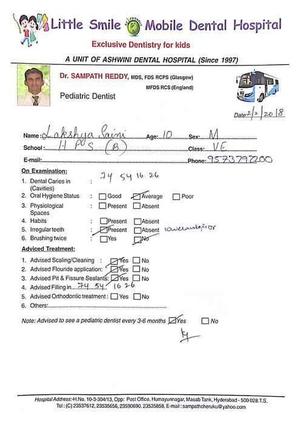 Little Smile Mobile Dental Hospital
Exclusive Dentistry for kids
A UNIT OF ASHWINI DENTAL HOSPITAL (Since 1997)
Dr. SAMPATH REDDY, MDS, FDS RCPS (Glasgow)
MFDS RCS (England)
Pediatric Dentist
Date: 2/2/2018
Name: Lakshya Saini Age: 10 Sex: M
School: HPS (B) Class: VE
E-mail: Phone: 9573797200
On Examination:
1. Dental Caries in 74 54 16 26
(Cavities)
2. Oral Hygiene Status : Good Average Poor
3. Physiological Present Absent
Spaces
4. Habits : Present Absent
5. Irregular teeth : Present Absent
6. Brushing twice : Yes No
Adviced Treatment:
1. Advised Scaling/Cleaning : Yes No
2. Advised Flouride application: Yes No
3. Advised Pit & Fissure Sealants: Yes No
4. Advised Filling in 74 54 16 26
5. Advised Orthodontic treatment : Yes No
6. Others:
Note: Advised to see a pediatric dentist every 3-6 months Yes No
Hospital Address: H.No. 10-3-304/13, Opp: Post Office, Humayunnagar, Masab Tank, Hyderabad - 500 028.T.S.
Tel: (C) 23537612, 23535656, 23590690, 23535858. E-mail: sampathcheruku@yahoo.com